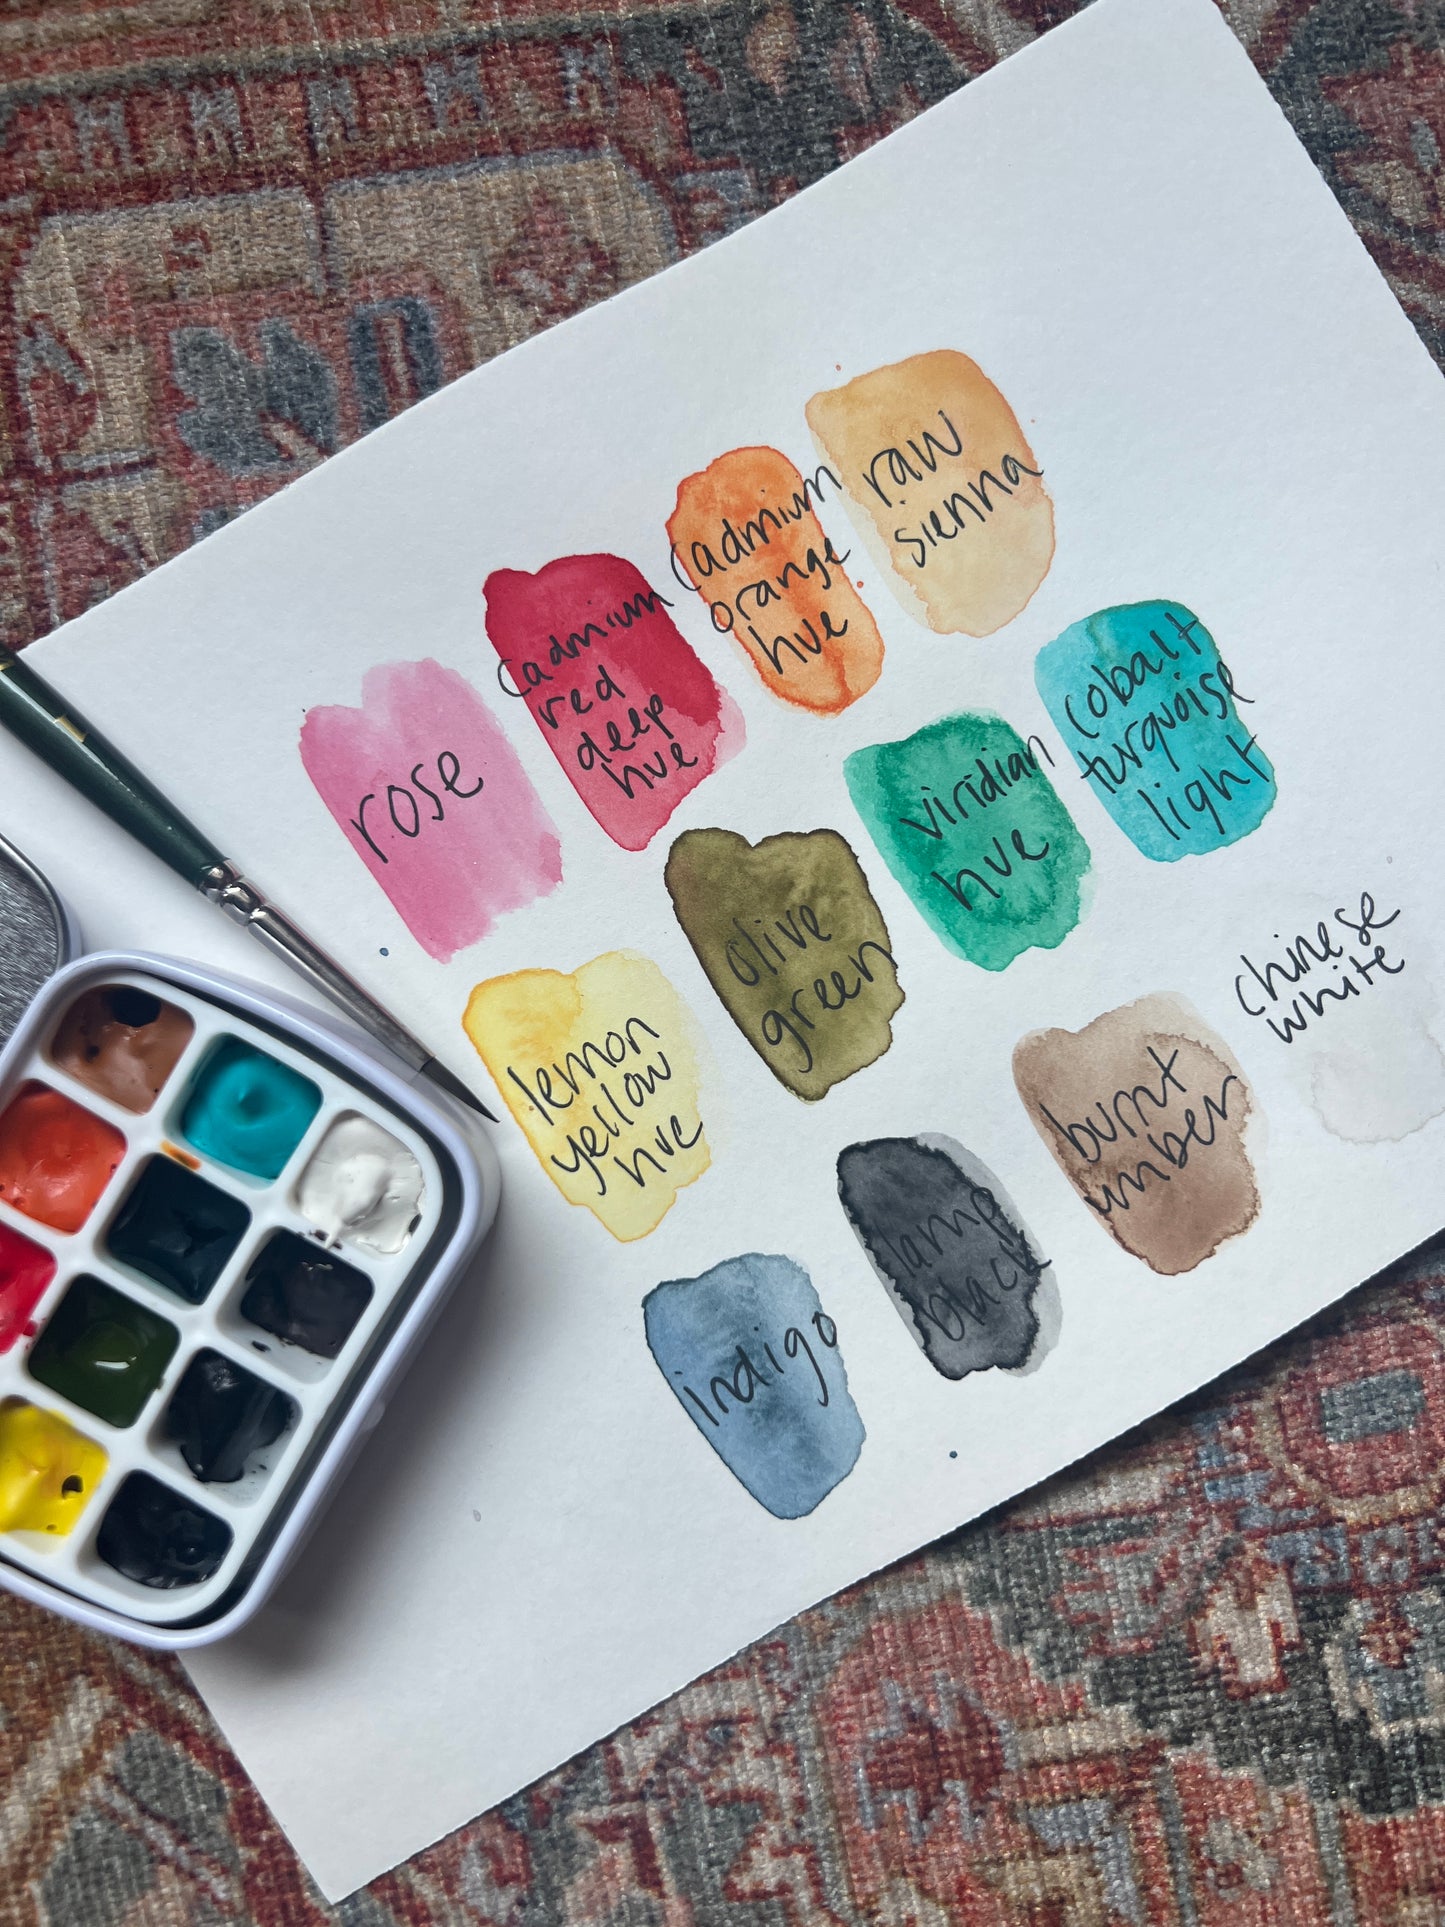 rose
cadmium
red
deep
hue
cadmium
orange
hue
raw
sienna
lemon
yellow
hue
olive
green
viridian
hue
cobalt
turquoise
light
indigo
lamp
black
burnt
umber
chinese
white